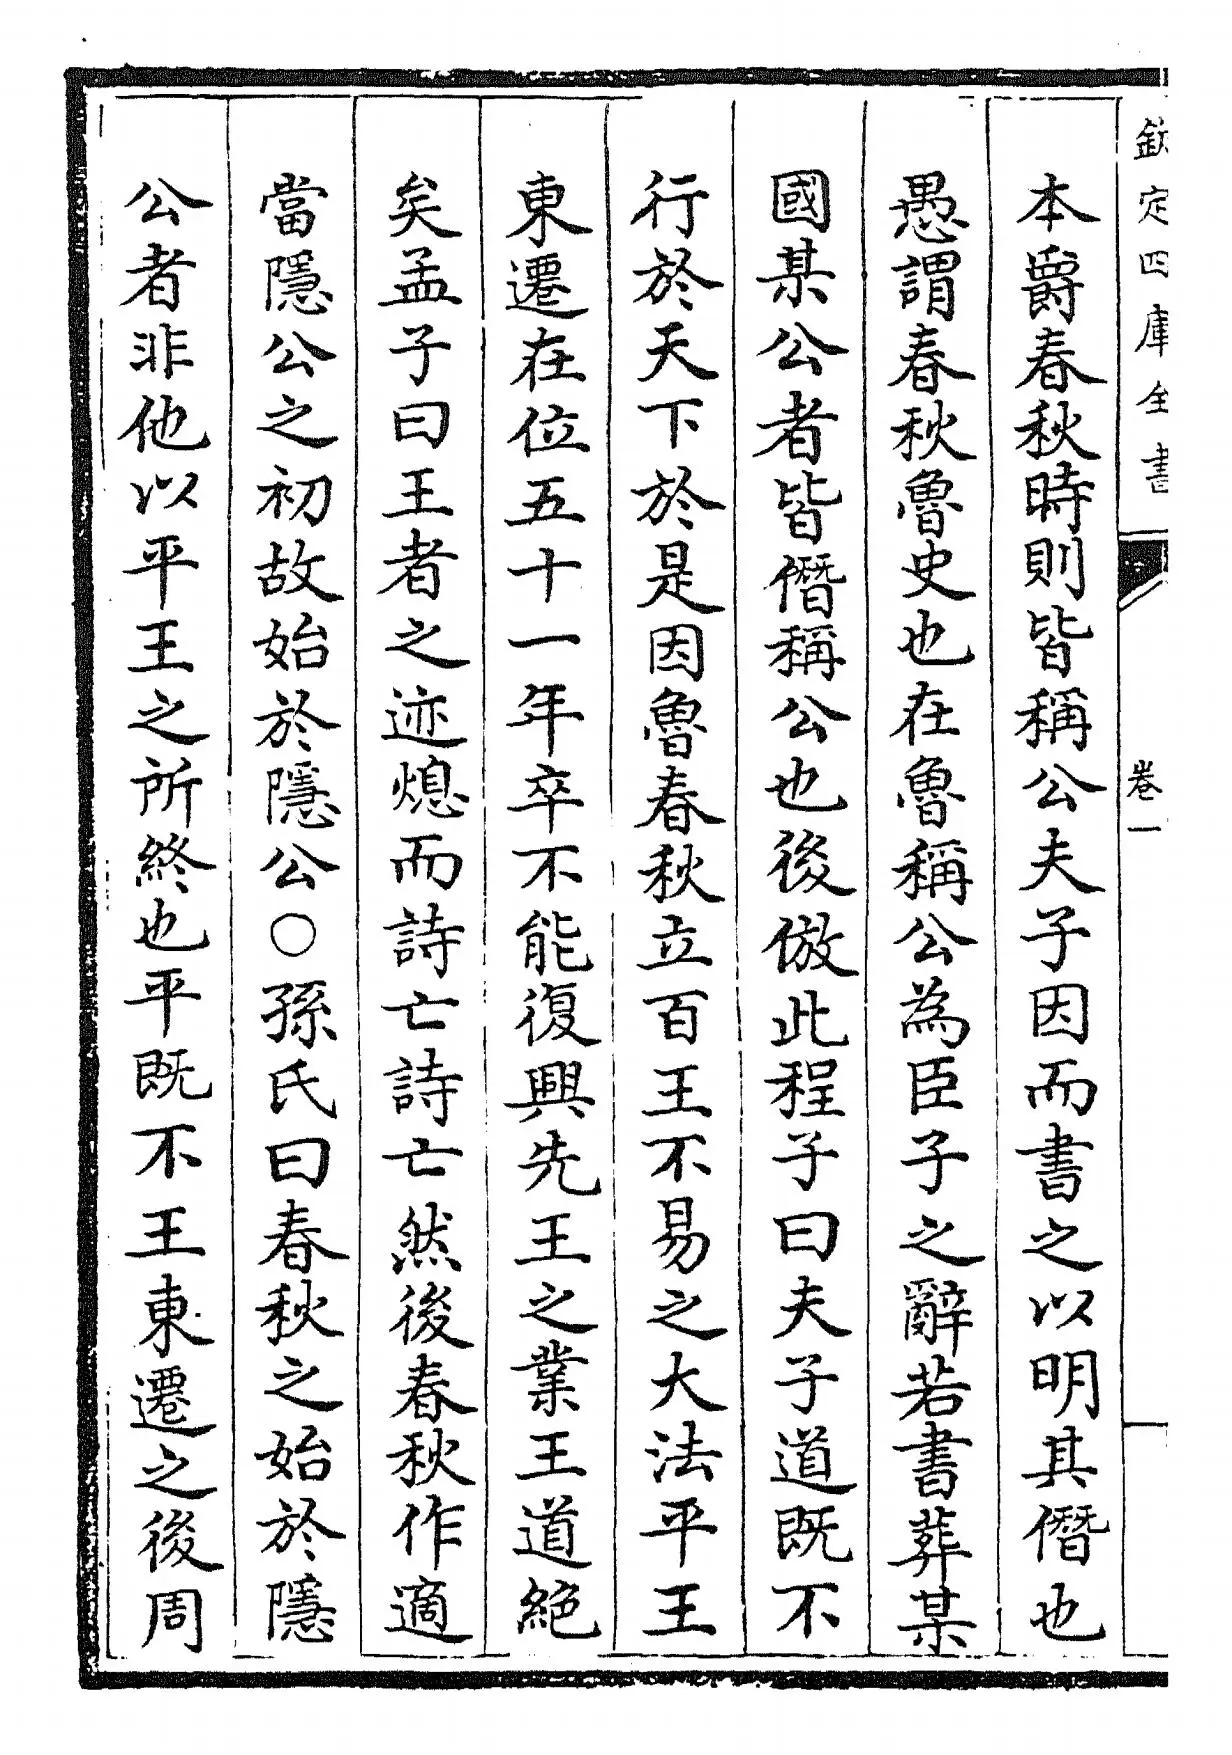 欽定四庫全書
卷一
本爵春秋時則皆稱公夫子因而書之以明其僭也
愚謂春秋魯史也在魯稱公為臣子之辭若書葬某
國某公者皆僭稱公也後倣此程子曰夫子道既不
行於天下於是因魯春秋立百王不易之大法平王
東遷在位五十一年卒不能復興先王之業王道絕
矣孟子曰王者之迹熄而詩亡詩亡然後春秋作適
當隱公之初故始於隱公○孫氏曰春秋之始於隱
公者非他以平王之所終也平既不王東遷之後周